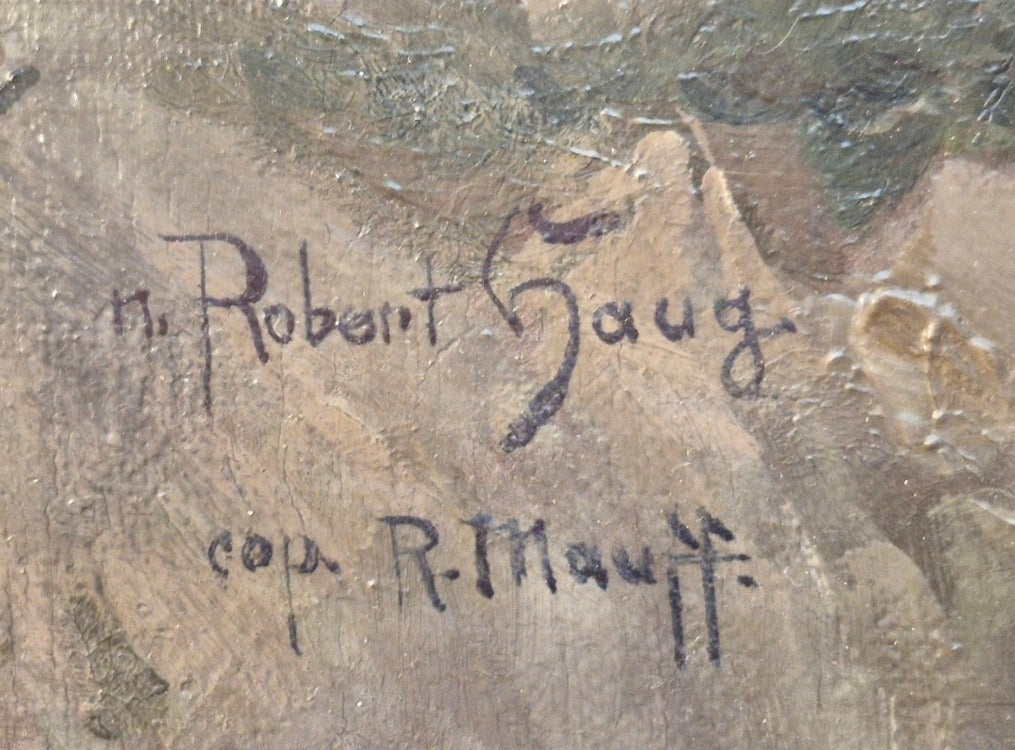 n. Robert Haug
cop. R. Mauff.